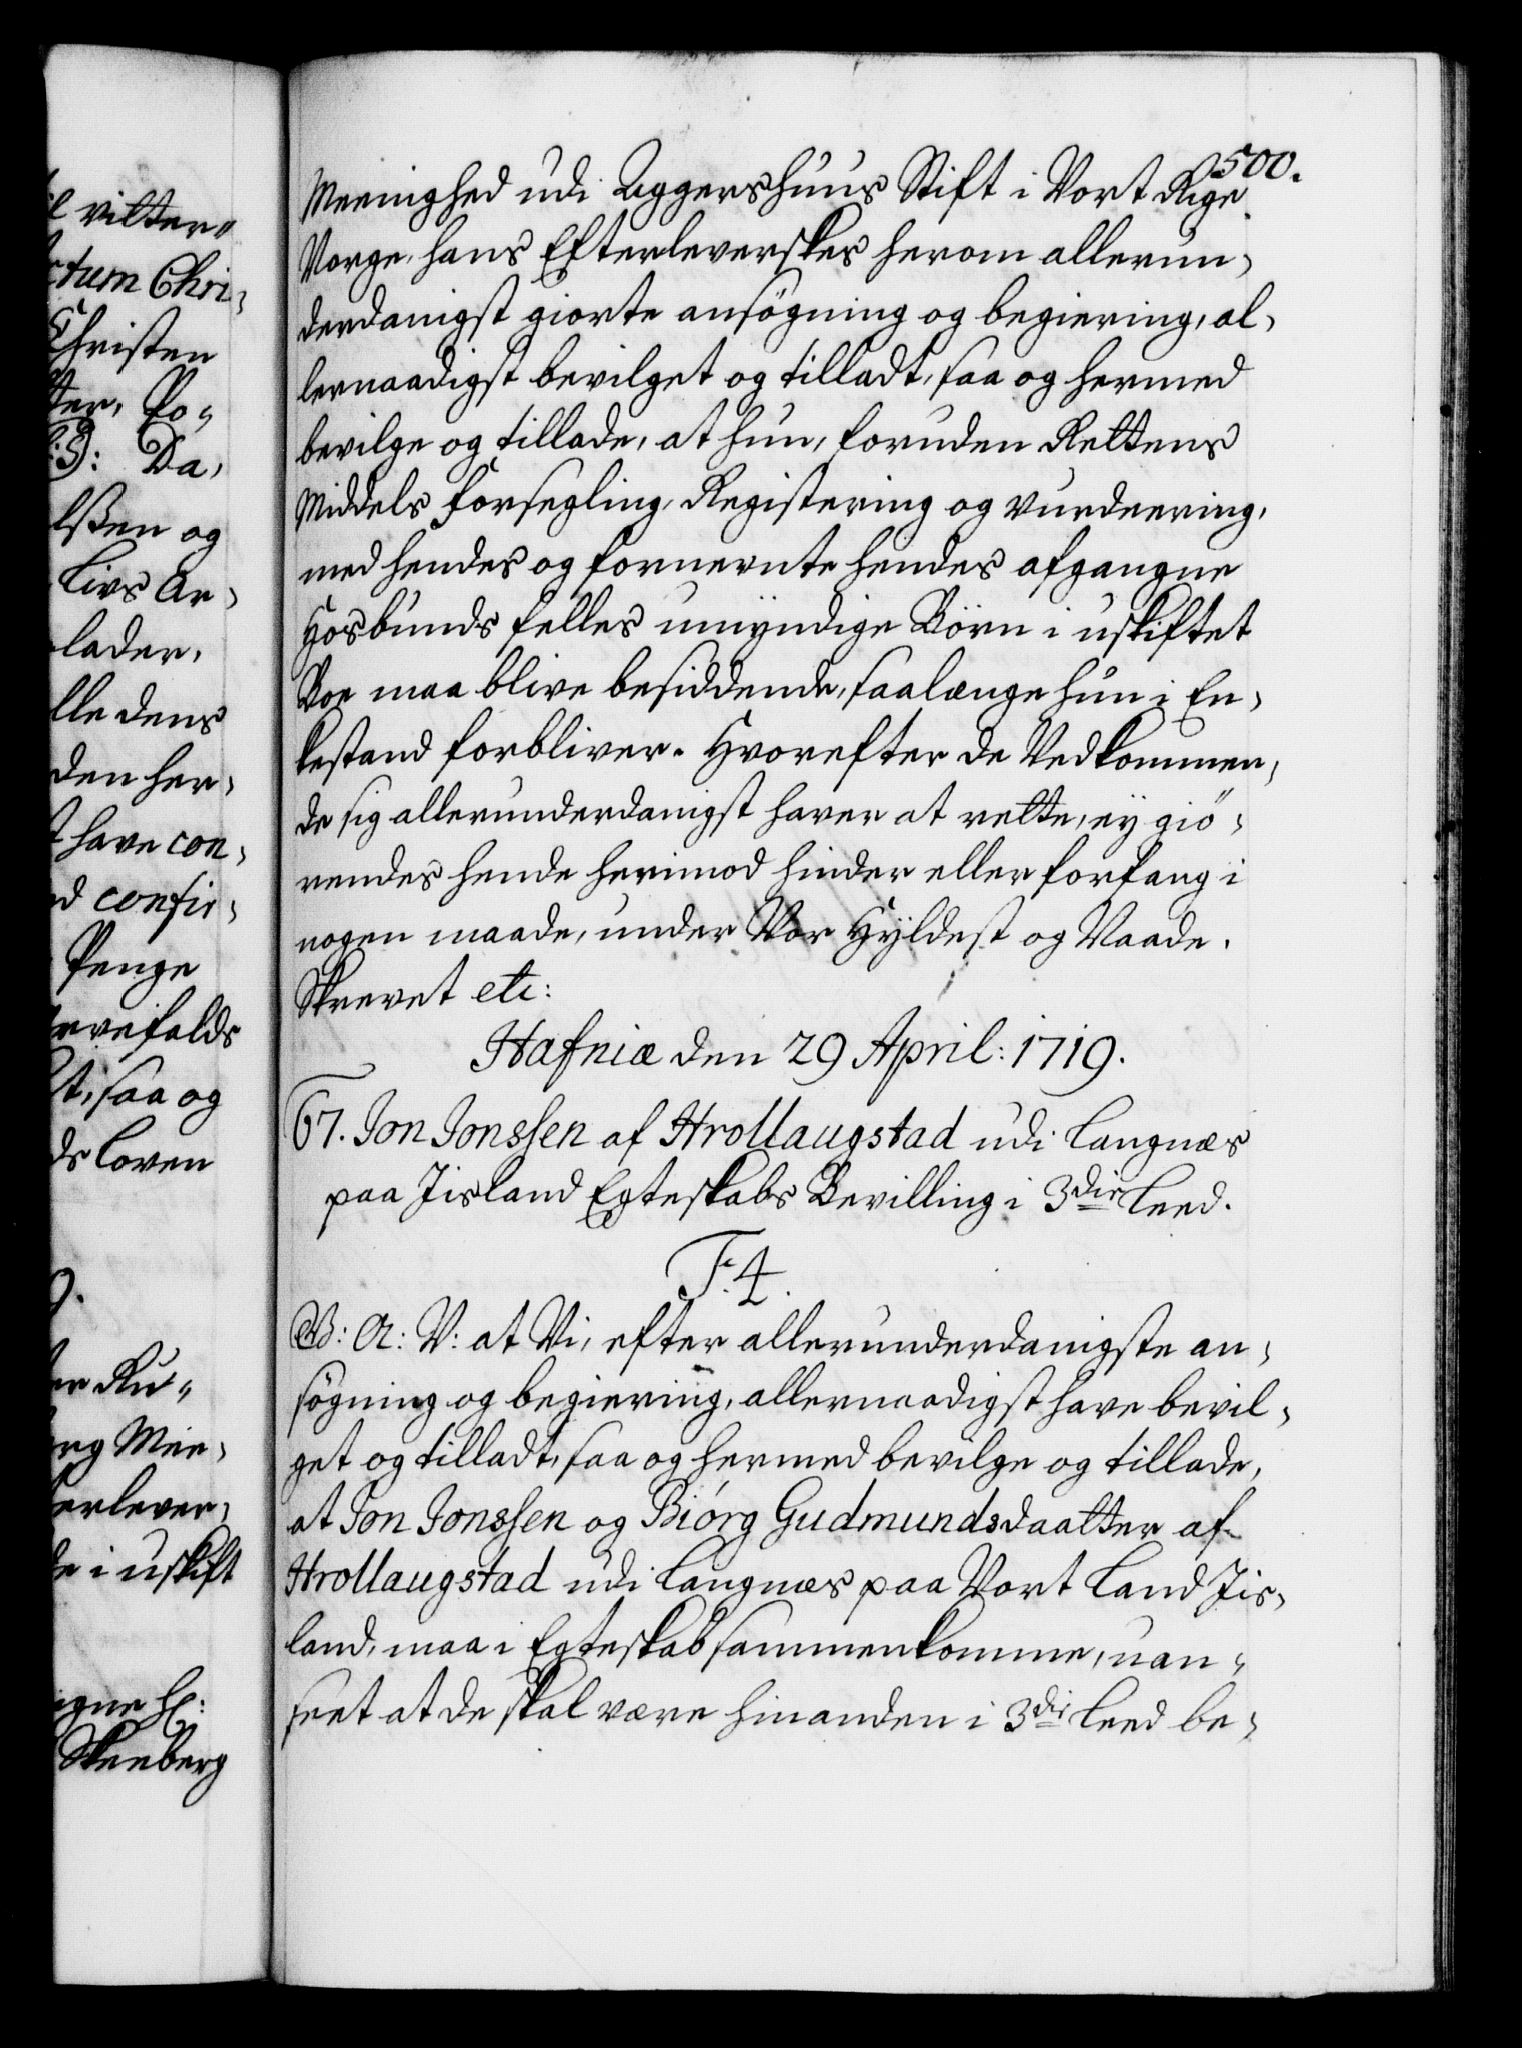 il vitter„
ctum Chri-
Christen
tter, Po-
Da-
lssen og
Livs Ar-
lader,
lle dens
den her-
t have con-
d confir-
Penge
rvefalds
t, saa og
ds Loven
9.
er Ru„
erg Mee-
erlever-
de i uskift
igne H:
Skeeberg
500.
Meenighed udi Aggershuus Stift i Vort Rige
Norge, hans Efterleverskes herom allerun-
derdanigst giorte ansögning og begiering, al-
lernaadigst bevilget og tilladt, saa og hermed
bevilge og tillade, at hun, foruden Rettens
Middels Forsegling, Registering og Vurdeering,
med hendes og fornevnte hendes afgangne
Hosbunds felles umÿndige Börn i uskiftet
Boe maa blive besiddende, saalænge hun i En-
kestand forbliver. Hvorefter de Vedkommen-
de sig allerunderdanigst haver at rette, eÿ giö-
rendes hende herimod hinder eller forfang i
nogen maade, under Vor Hÿldest og Naade.
Skrevet etc:
Hafniæ den 29 April: 1719.
67. Jon Jonssen af Hrollaugstad udi Langnæs
paa Jisland Egteskabs Bevilling i 3die Leed.
F. 4.
G: A: V: at Vi, efter allerunderdanigste an-
sögning og begiering, allernaadigst have bevil-
get og tilladt, saa og hermed bevilge og tillade,
at Jon Jonssen og Biórg Gudmundsdaatter af
Hrollaugstad udi Langnæs paa Vort Land Jis-
land, maa i Egteskab sammenkomme, uan-
seet at de skal være hinanden i 3die Leed be-